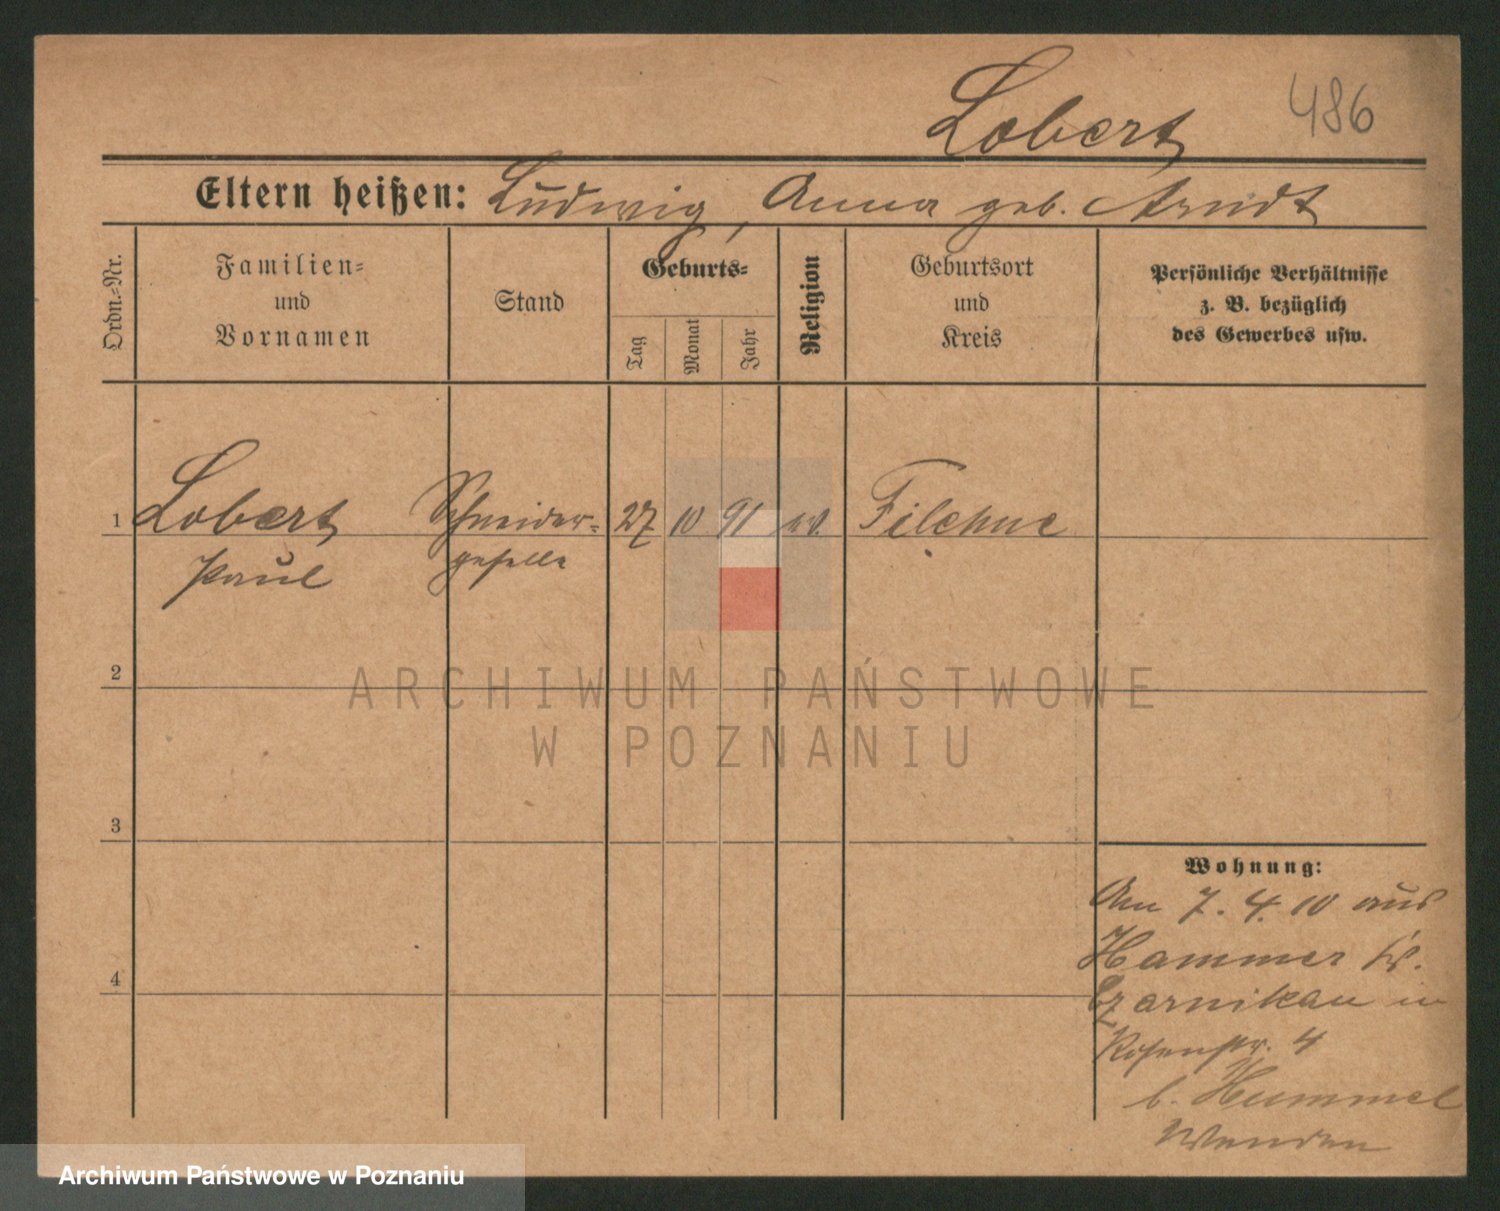 486
Lobert
Eltern heißen: Ludwig, Anna geb. Arndt
Ordn.-Nr.
Familien-
und
Vornamen
Stand
Geburts-
Tag
Monat
Jahr
Religion
Geburtsort
und
Kreis
Persönliche Verhältnisse
z. B. bezüglich
des Gewerbes usw.
1 Lobert Schneider- 27 10 91 ev. Filehne
Paul geselle
2
3
4
Wohnung:
Am 7. 4. 10 aus
Hammer Kr.
Czarnikau in
Rosenstr. 4
b. Hummel
ARCHIWUM PAŃSTWOWE
W POZNANIU
Archiwum Państwowe w Poznaniu